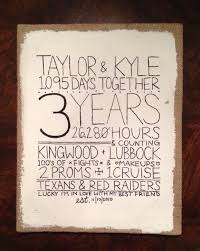 TAYLOR & KYLE
1,095 DAYS TOGETHER
3 YEARS
26,280 HOURS
& COUNTING
KINGWOOD + LUBBOCK
100'S OF FIGHTS & MAKEUPS
2 PROMS + 1 CRUISE
TEXANS & RED RAIDERS
LUCKY I'M IN LOVE WITH MY BEST FRIEND
est.